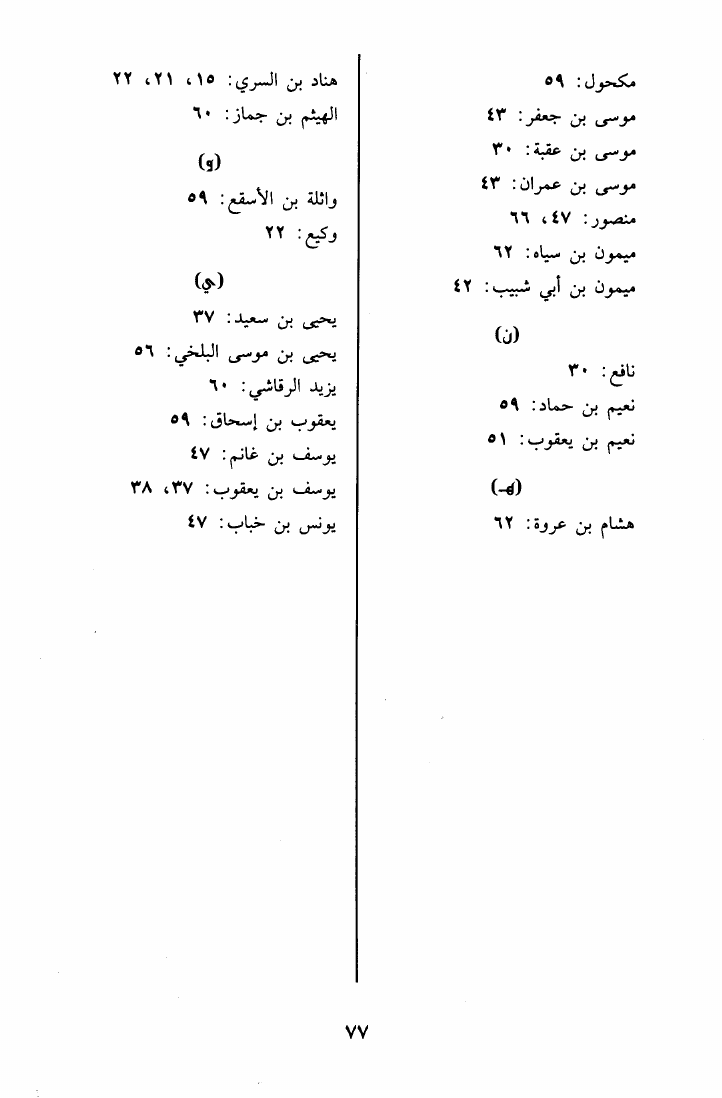 مكحول: ٥٩
موسى بن جعفر: ٤٣
موسى بن عقبة: ٣٠
موسى بن عمران: ٤٣
منصور: ٤٧، ٦٦
ميمون بن سياه: ٦٢
ميمون بن أبي شبيب: ٤٢
(ن)
نافع: ٣٠
نعيم بن حماد: ٥٩
نعيم بن يعقوب: ٥١
(هـ)
هشام بن عروة: ٦٢
هناد بن السري: ١٥، ٢١، ٢٢
الهيثم بن جماز: ٦٠
(و)
واثلة بن الأسقع: ٥٩
وكيع: ٢٢
(ي)
يحيى بن سعيد: ٣٧
يحيى بن موسى البلخي: ٥٦
يزيد الرقاشي: ٦٠
يعقوب بن إسحاق: ٥٩
يوسف بن غانم: ٤٧
يوسف بن يعقوب: ٣٧، ٣٨
يونس بن خباب: ٤٧
٧٧